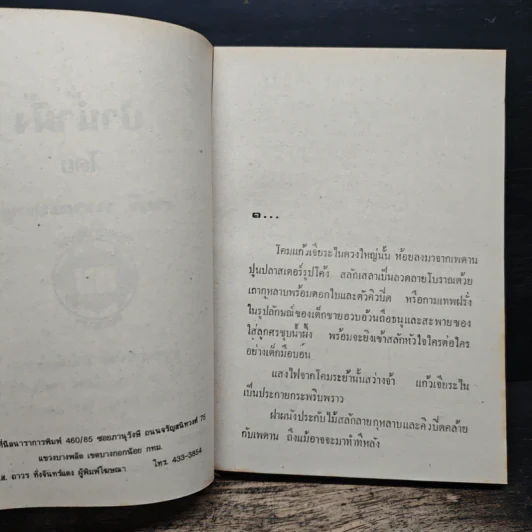 ที่นีลนาราการพิมพ์ 460/85 ซอยภาณุรังษี ถนนจรัญสนิทวงศ์ 75
แขวงบางพลัด เขตบางกอกน้อย กทม.
ส. ถาวร กิ่งจันทร์แดง ผู้พิมพ์โฆษณา โทร. 433-3854
๑...
โคมแก้วเจียระไนดวงใหญ่นั้น ห้อยลงมาจากเพดาน
ปูนปลาสเตอร์รูปโค้ง สลักเสลาเป็นลวดลายโบราณด้วย
เถากุหลาบพร้อมดอกใบและตัวคิวปิด หรือกามเทพฝรั่ง
ในรูปลักษณ์ของเด็กชายอวบอ้วนถือธนูและสะพายซอง
ใส่ลูกศรชุบน้ำผึ้ง พร้อมจะยิงเข้าสลักหัวใจใครต่อใคร
อย่างเด็กมือบอน
แสงไฟจากโคมระย้านั้นสว่างจ้า แก้วเจียระไน
เป็นประกายกระพริบพราว
ฝาผนังประกับไม้สลักลายกุหลาบและคิวปิดคล้าย
กับเพดาน ถึงแม้อาจจะมาทำทีหลัง